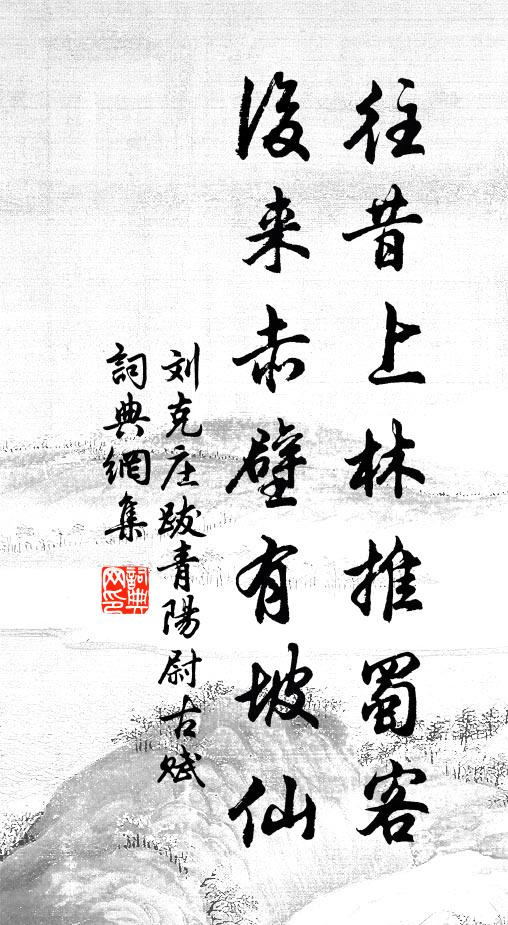 往昔上林推蜀客
後来赤壁有坡仙
刘克庄跋青陽尉古赋
詞典網集
詞典網印